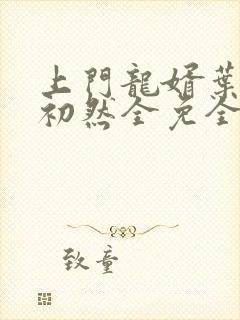 上門龍婿葉
初然全免全
致童